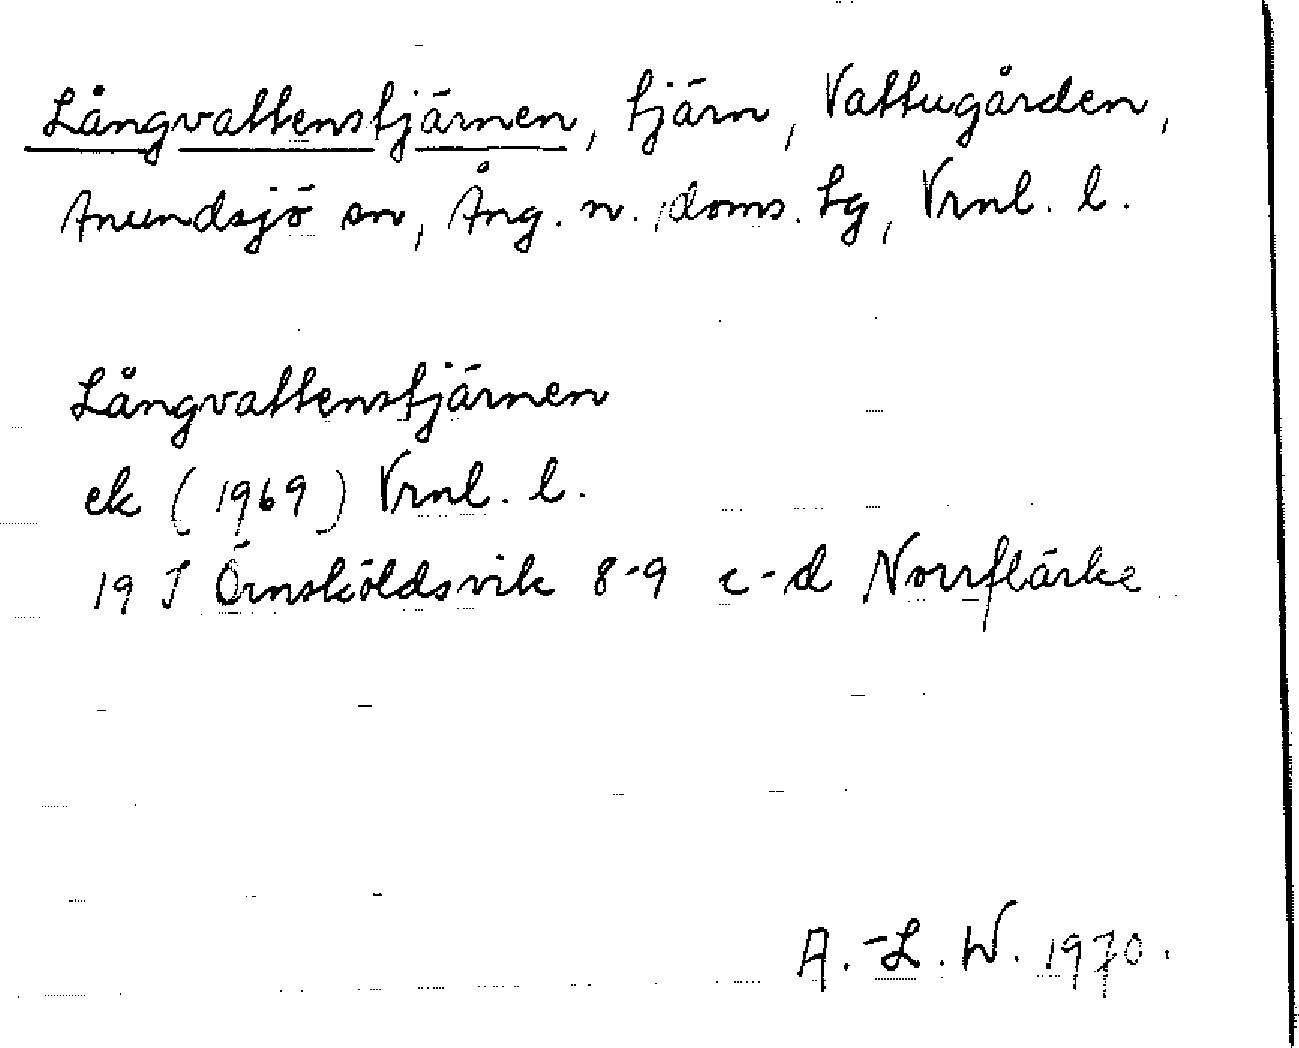 Långvattenstjärnen, tjärn, Vattugården,
Anundsjö sn, Ång. n. doms. tg, Vrnl. l.
Långvattenstjärnen
ek (1969) Vrnl. l.
19 J Örnsköldsvik 8-9 c-d Norrflärke
A.-L. W. 1970.